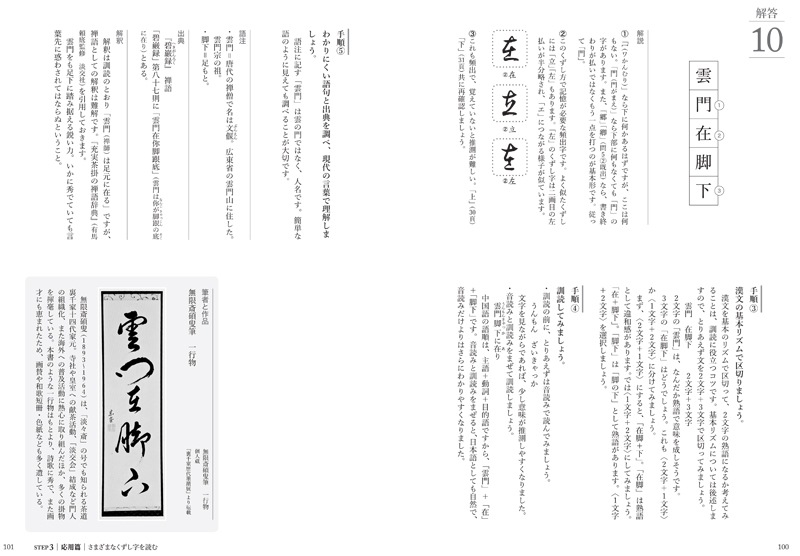 解答
10
雲門在脚下
①
②
③
解説
①「雨(アメかんむり)」なら下に何かあるはずですが、ここは何
もない。「門(門がまえ)」なら下部に何もなくても「門」の
字があります。また、
わりが払いではなくもう一点を打つのが基本形です。従っ
て「門」。
②このくずし方で記憶が必要な頻出字です。よく似たくずし
には「立」「左」もあります。「左」のくずし字は二画目の左
払いが半分略され、「エ」につながる様子が似ています。
②在
②立
②左
③これも頻出で、覚えていないと推測が難しい。「上」(30頁)
「下」(31頁)共に再確認しましょう。
手順③
漢文の基本リズムで区切りましょう。
漢文を基本のリズムで区切って、2文字の熟語になるか考えてみ
ることは、訓読に役立つコツです。基本リズムについては後述しま
すので、とりあえず文を2文字+3文字で区切ってみましょう。
雲門 在脚下 2文字+3文字
2文字の「雲門」は、なんだか熟語で意味を成しそうです。
3文字の「在脚下」はどうでしょう。これも〈2文字+1文字〉
か〈1文字+2文字〉に分けてみましょう。
まず、〈2文字+1文字〉にすると、「在脚+下」。「在脚」は熟語
として違和感があります。では〈1文字+2文字〉にしてみましょう。
「在+脚下」。「脚下」は「脚の下」として熟語があります。〈1文字
+2文字〉を選択しましょう。
手順④
訓読してみましょう。
・訓読の前に、とりあえずは音読みで読んでみましょう。
うんもん ざいきゃっか
文字を見ながらであれば、少し意味が推測しやすくなりました。
・音読みと訓読みをまぜて訓読しましょう。
雲門脚下に在り
中国語の語順は、主語+動詞+目的語ですから、「雲門」+「在」
+「脚下」です。音読みと訓読みをまぜると、日本語としても自然で、
音読みだけよりはさらにわかりやすくなりました。
100
手順⑤
わかりにくい語句と出典を調べ、現代の言葉で理解しま
しょう。
語注に記す「雲門」は雲の門ではなく、人名です。簡単な
語のように見えても調べることが大切です。
語注
・雲門=唐代の禅僧で名は文偃。広東省の雲門山に住した。
雲門宗の祖。
・脚下=足もと。
出典
『碧巌録』 禅語
『碧巌録』第八十七則に「雲門在你脚跟底」(雲門は你が脚跟の底
に在り)とある。
解釈
解釈は訓読のとおり「雲門(禅師)は足元に在る」ですが、
禅語としての解釈は難解です。『充実茶掛の禅語辞典』(有馬
頼底監修 淡交社)を引用しておきます。
雲門をも足下に踏み据える鋭い力。いかに秀でていても言
葉先に惑わされてはならぬということ。
筆者と作品
無限斎碩叟筆 一行物
無限斎碩叟筆 一行物
個人蔵
『裏千家歴代筆蹟展』より転載
雲門在脚下
無限斎碩叟(1893-1964)は、「淡々斎」の号でも知られる茶道
裏千家十四代家元。寺社や皇室への献茶活動、「淡交会」結成など門人
の組織化、また海外への普及活動に熱心に取り組んだほか、多くの掛物
を揮毫している。本書のような一行物はもとより、詩歌に秀で、また画
才にも恵まれたため、画賛や和歌短冊・色紙なども多く遺している。
101
STEP3|応用篇|さまざまなくずし字を読む